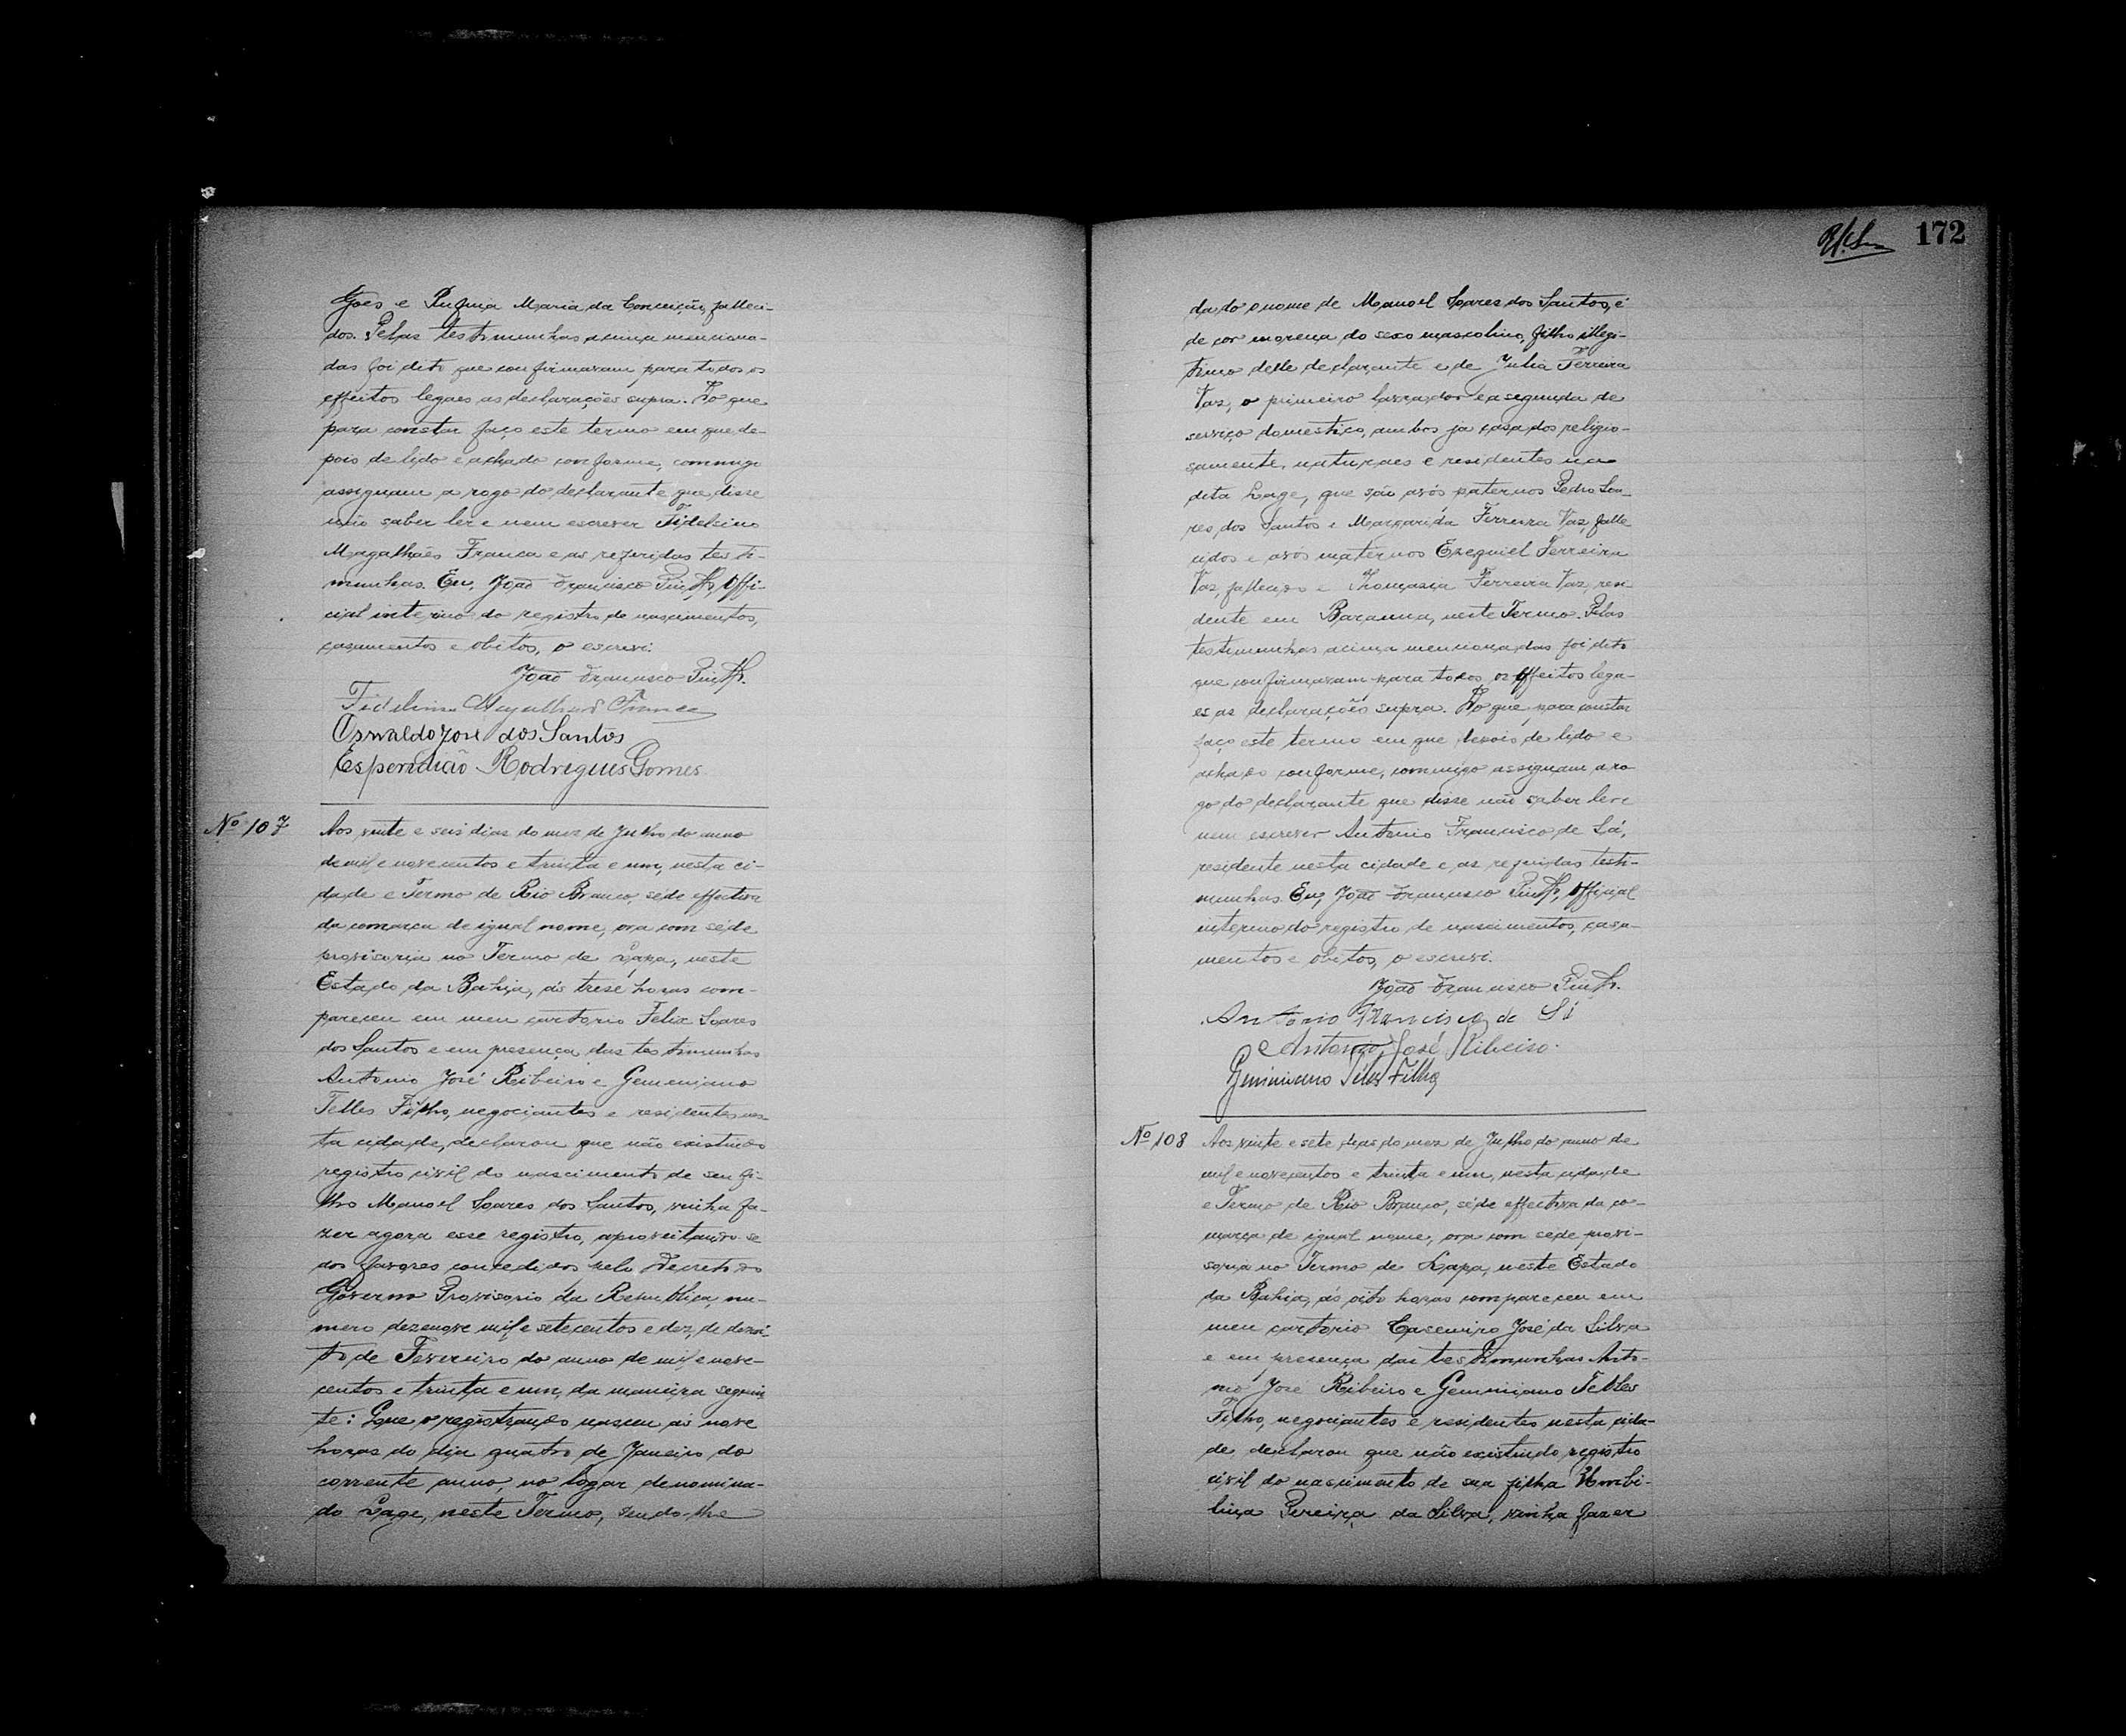 Goes e Rufina Maria da Conceição, falleci-
dos. Pelas testimunhas acima menciona-
das foi dito que confirmavam para todos os
effeitos legaes as declarações supra. Do que
para constar faço este termo em que de-
pois de lido e achado conforme, commigo
assignam a rogo do declarante que disse
não saber ler e nem escrever Fidelsino
Magalhães Franca e as referidas testi-
munhas. Eu, João Francisco Offi-
cial interino do registro de nascimentos,
casamentos e obitos, o escrevi.
João Francisco
Fidelsino Magalhães Franca
Oswaldo José dos Santos
Esperidião Rodrigues Gomes
Nº 107
Aos vinte e seis dias do mez de Julho do anno
de mil e novecentos e trinta e um, nesta ci-
dade e Termo de Rio Branco, séde effectiva
da comarca de igual nome, ora com séde
provisoria no Termo de Lapa, neste
Estado da Bahia, ás trese horas com-
pareceu em meu cartorio Felix Soares
dos Santos e em presença das testimunhas
Antonio José Ribeiro e Geminiano
Telles Filho, negociantes e residentes nes-
ta cidade, declarou que não existindo
registro civil do nascimento de seu fi-
lho Manoel Soares dos Santos, vinha fa-
zer agora esse registro, aproveitando-se
dos favores concedidos pelo Decreto do
Governo Provisorio da Republica, nu-
mero dezenove mil e setecentos e dez, de dezoi-
to de Fevereiro do anno de mil e nove-
centos e trinta e um, da maneira seguin-
te: Que o registrando nasceu ás nove
horas do dia quatro de Janeiro do
corrente anno, no logar denomina-
do Lage, neste Termo, sendo-lhe
172
dado o nome de Manoel Soares dos Santos, é
de cor morena do sexo masculino, filho illegi-
timo delle declarante e de Julia Ferreira
Vaz, o primeiro lavrador e a segunda de
serviço domestico, ambos ja casados religio-
samente, naturaes e residentes na
dita Lage, que são avós paternos Pedro Soa-
res dos Santos e Margarida Ferreira Vaz, falle
cidos e avós maternos Ezequiel Ferreira
Vaz, fallecido e Thomasia Ferreira Vaz, resi-
dente em Barauna, neste Termo. Pelas
testimunhas acima mencionadas foi dito
que confirmavam para todos os effeitos lega-
es as declarações supra. Do que para constar
faço este termo em que depois de lido e
achado conforme, commigo assignam a ro-
go do declarante que disse não saber ler e
nem escrever Antonio Francisco de Sá,
residente nesta cidade e as referidas testi-
munhas. Eu, João Francisco Official
interino do registro de nascimentos, casa-
mentos e obitos, o escrevi.
João Francisco
Antonio Francisco de Sá
Antonio José Ribeiro.
Geminiano Teles Filho
Nº 108
Aos vinte e sete dias do mez de Julho do anno de
mil e novecentos e trinta e um, nesta cidade
e Termo de Rio Branco, séde effectiva da co-
marca de igual nome, ora com séde provi-
soria no Termo de Lapa, neste Estado
da Bahia, ás oito horas compareceu em
meu cartorio Casemiro José da Silva
e em presença das testimunhas Anto-
nio José Ribeiro e Geminiano Telles
Filho, negociantes e residentes nesta cida-
de declarou que não existindo registro
civil do nascimento de sua filha Umbi-
lina Pereira da Silva, vinha fazer